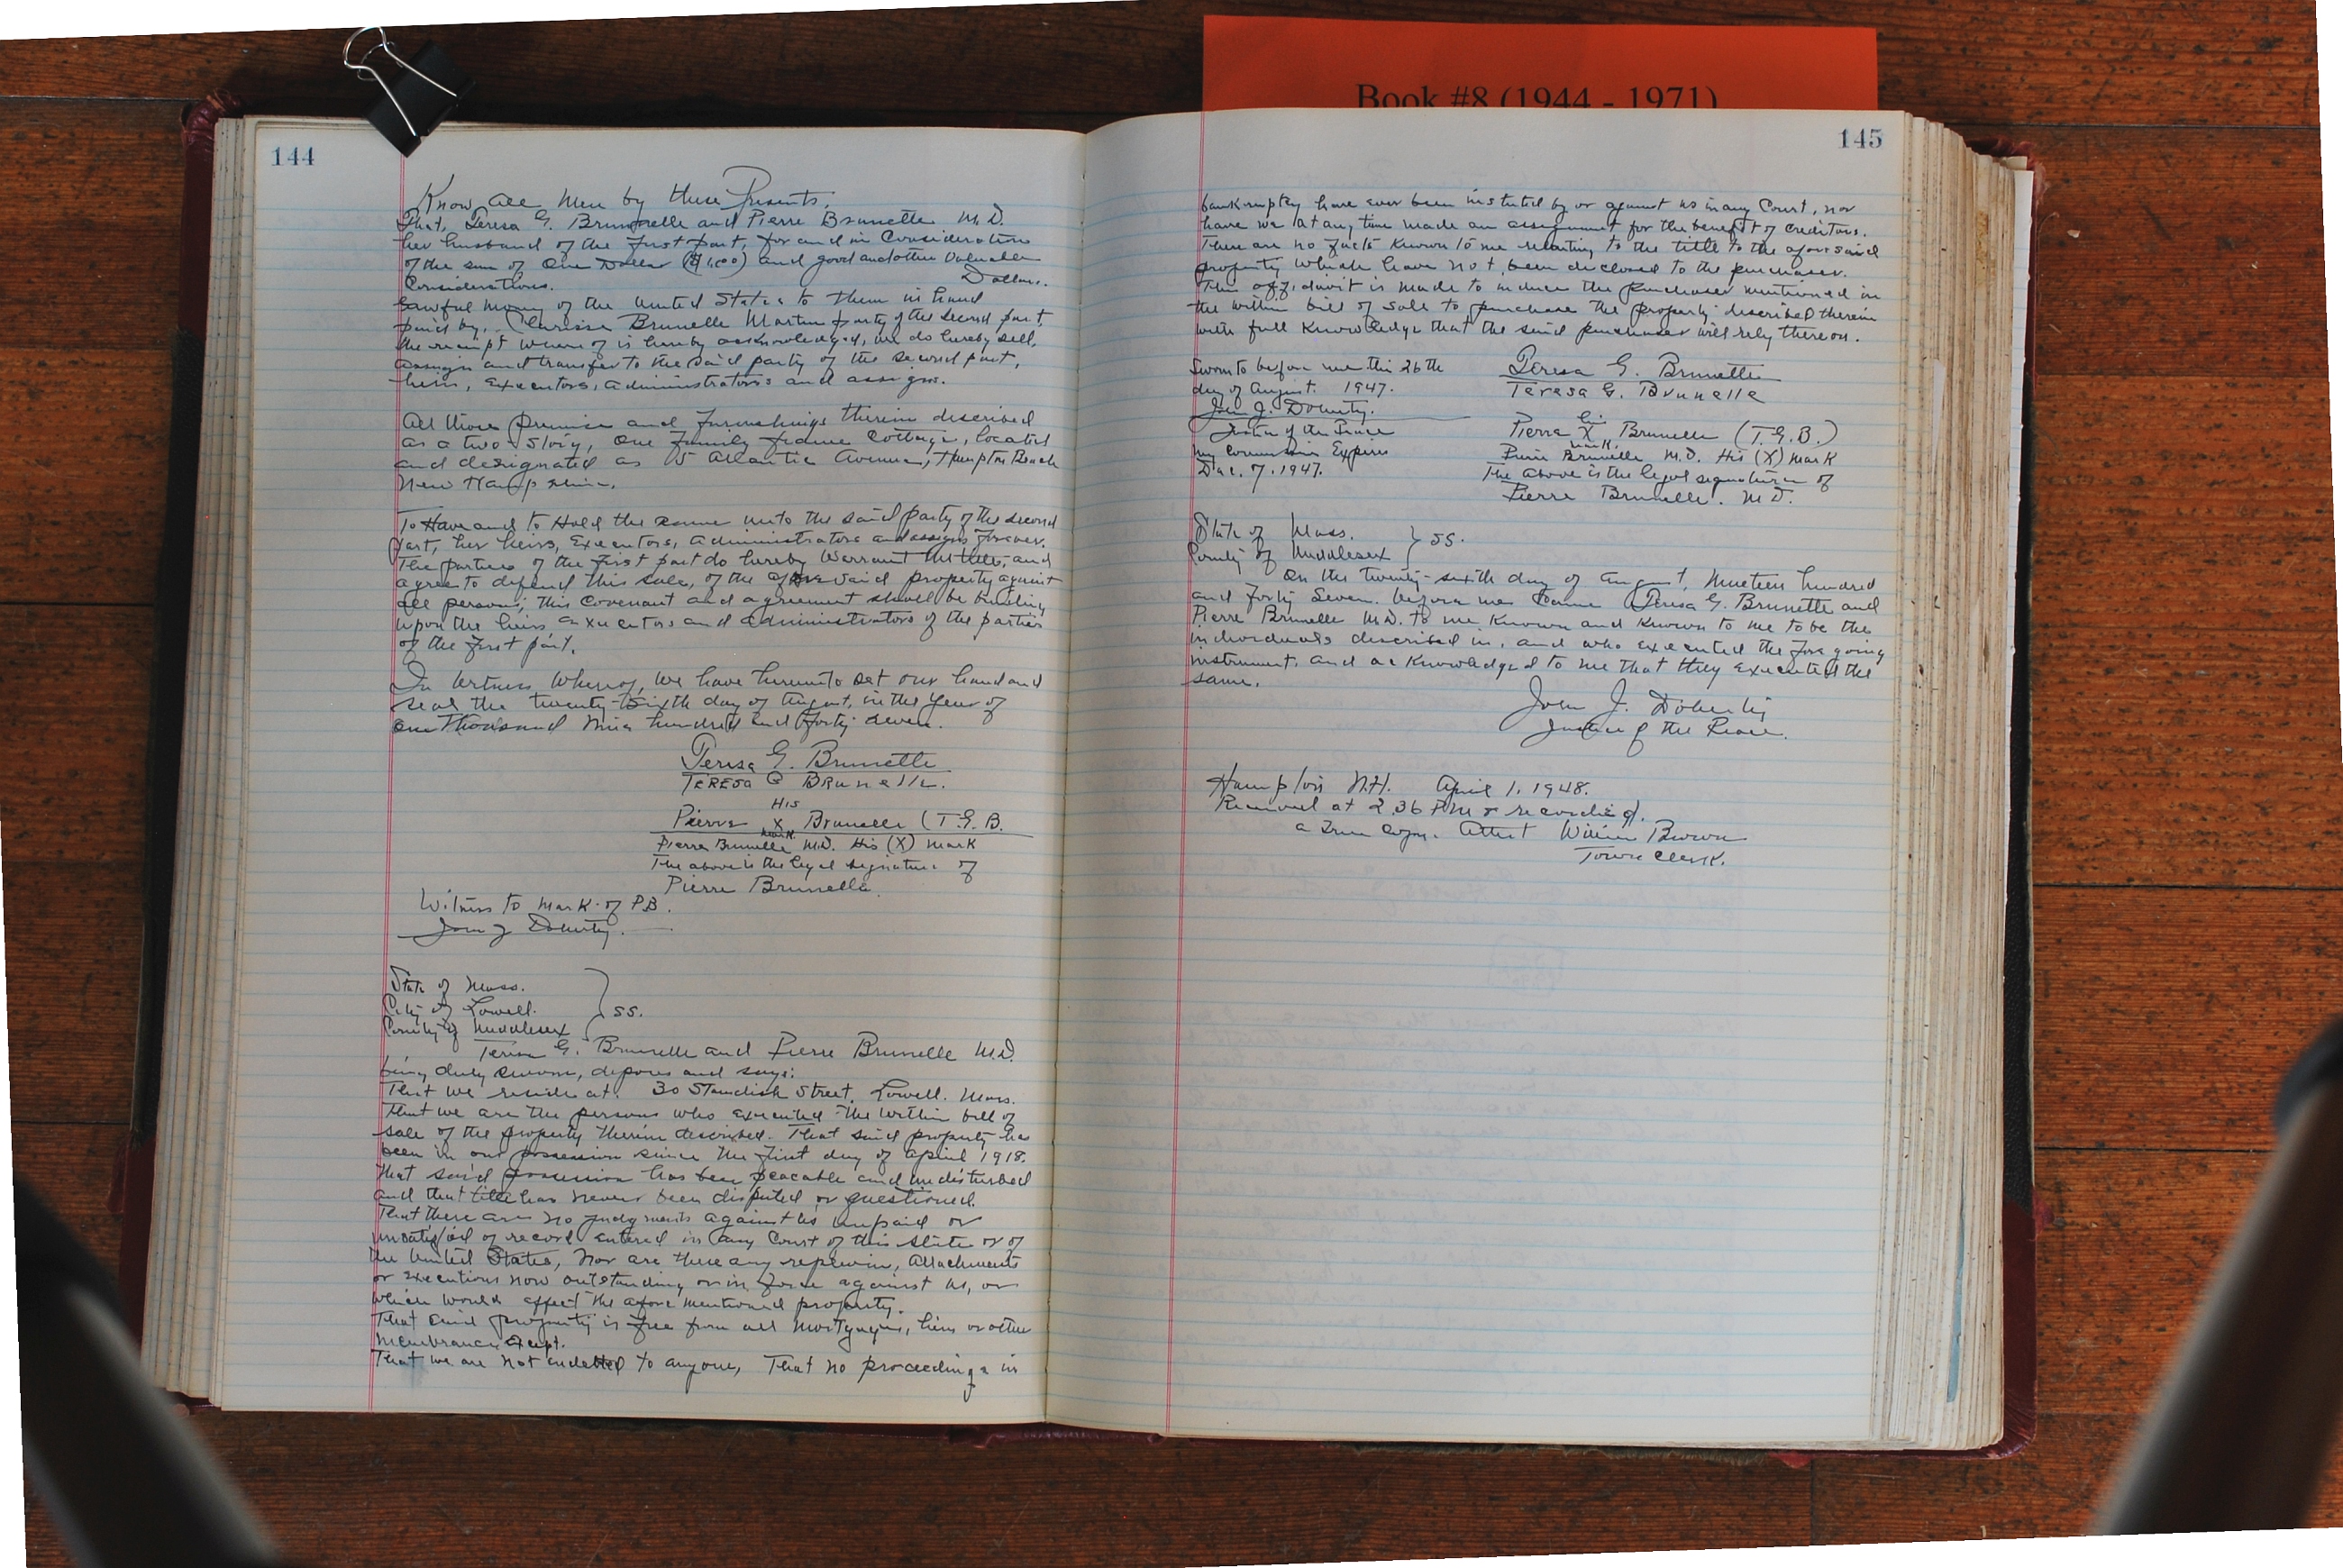 Book #8 (1944 - 1971)
144
Know all Men by these Presents,
That, Teresa G. Brunelle and Pierre Brunelle M.D.
her husband of the first part, for and in Consideration
of the sum of One Dollar ($1.00) and good and other Valuable
Considerations. Dollars.
Lawful money of the United States to them in hand
paid by, Clarisse Brunelle Martin party of the second part,
the receipt whereof is hereby acknowledged, we do hereby sell,
assign and transfer to the said party of the second part,
heirs, Executors, administrators and assigns.
All those premise and furnishings therein described
as a two story, one family frame Cottage, located
and designated as 15 Atlantic Avenue, Hampton Beach
New Hampshire.
To Have and to Hold the same unto the said party of the second
part, her heirs, Executors, administrators and assigns forever.
The parties of the first part do hereby Warrant the title, and
agree to defend this sale, of the aforesaid property against
all persons; this Covenant and agreement shall be binding
upon the heirs executors and administrators of the parties
of the first part.
In Witness Whereof, We have hereunto set our hand and
seal the twenty-sixth day of August, in the Year of
One Thousand Nine hundred and forty-seven.
Teresa G. Brunelle
TERESA G BRUNelle.
His
Pierre X Brunelle (T.G.B.
mark
Pierre Brunelle M.D. His (X) Mark
The above is the legal signature of
Pierre Brunelle
Witness to Mark of P.B.
John J Doherty.
State of Mass.
City of Lowell. ss.
County of Middlesex
Teresa G. Brunelle and Pierre Brunelle M.D.
being duly sworn, depose and says:
That we reside at. 30 Standish Street, Lowell. Mass.
That we are the persons who executed the within bill of
sale of the property therein described. That said property has
been in our possession since the first day of April 1918.
That said possession has been peacable and undisturbed
and that title has never been disputed or questioned.
That there are no judgments against us unpaid or
unsatisfied of record entered in any Court of this state or of
the United States, Nor are there any replevin, attachments
or executions now outstanding or in force against us, or
which would affect the afore mentioned property.
That said property is free from all Mortgages, liens or other
Except.
That we are not indebted to anyone, That no proceedings in
145
bankruptcy have ever been instituted by or against us in any Court, nor
have we at any time made an assignment for the benefit of Creditors.
There are no facts known to me relating to the title to the aforesaid
property which have not been disclosed to the purchaser.
This affidavit is made to induce the purchaser mentioned in
the within bill of sale to purchase the property described therein
with full knowledge that the said purchaser will rely thereon.
Sworn to before me this 26th
day of August. 1947.
John J. Doherty.
Justice of the Peace
My Commission Expires
Dec. 7. 1947.
Teresa G. Brunelle
Teresa G. Brunelle
his
Pierre X Brunelle (T.G.B.)
mark
Pierre Brunelle M.D. His (X) Mark
The above is the legal signature of
Pierre Brunelle. M D.
State of Mass.
County of Middlesex } ss.
On the twenty-sixth day of August, Nineteen hundred
and forty Seven. before me Came Teresa G. Brunelle and
Pierre Brunelle M.D. to me known and known to me to be the
individuals described in, and who executed the foregoing
instrument. and acknowledged to me that they executed the
same.
John J. Doherty
Justice of the Peace.
Hampton N.H. April 1, 1948.
Received at 2.36 P.M & recorded.
a True Copy. Attest William Brown
Town Clerk.